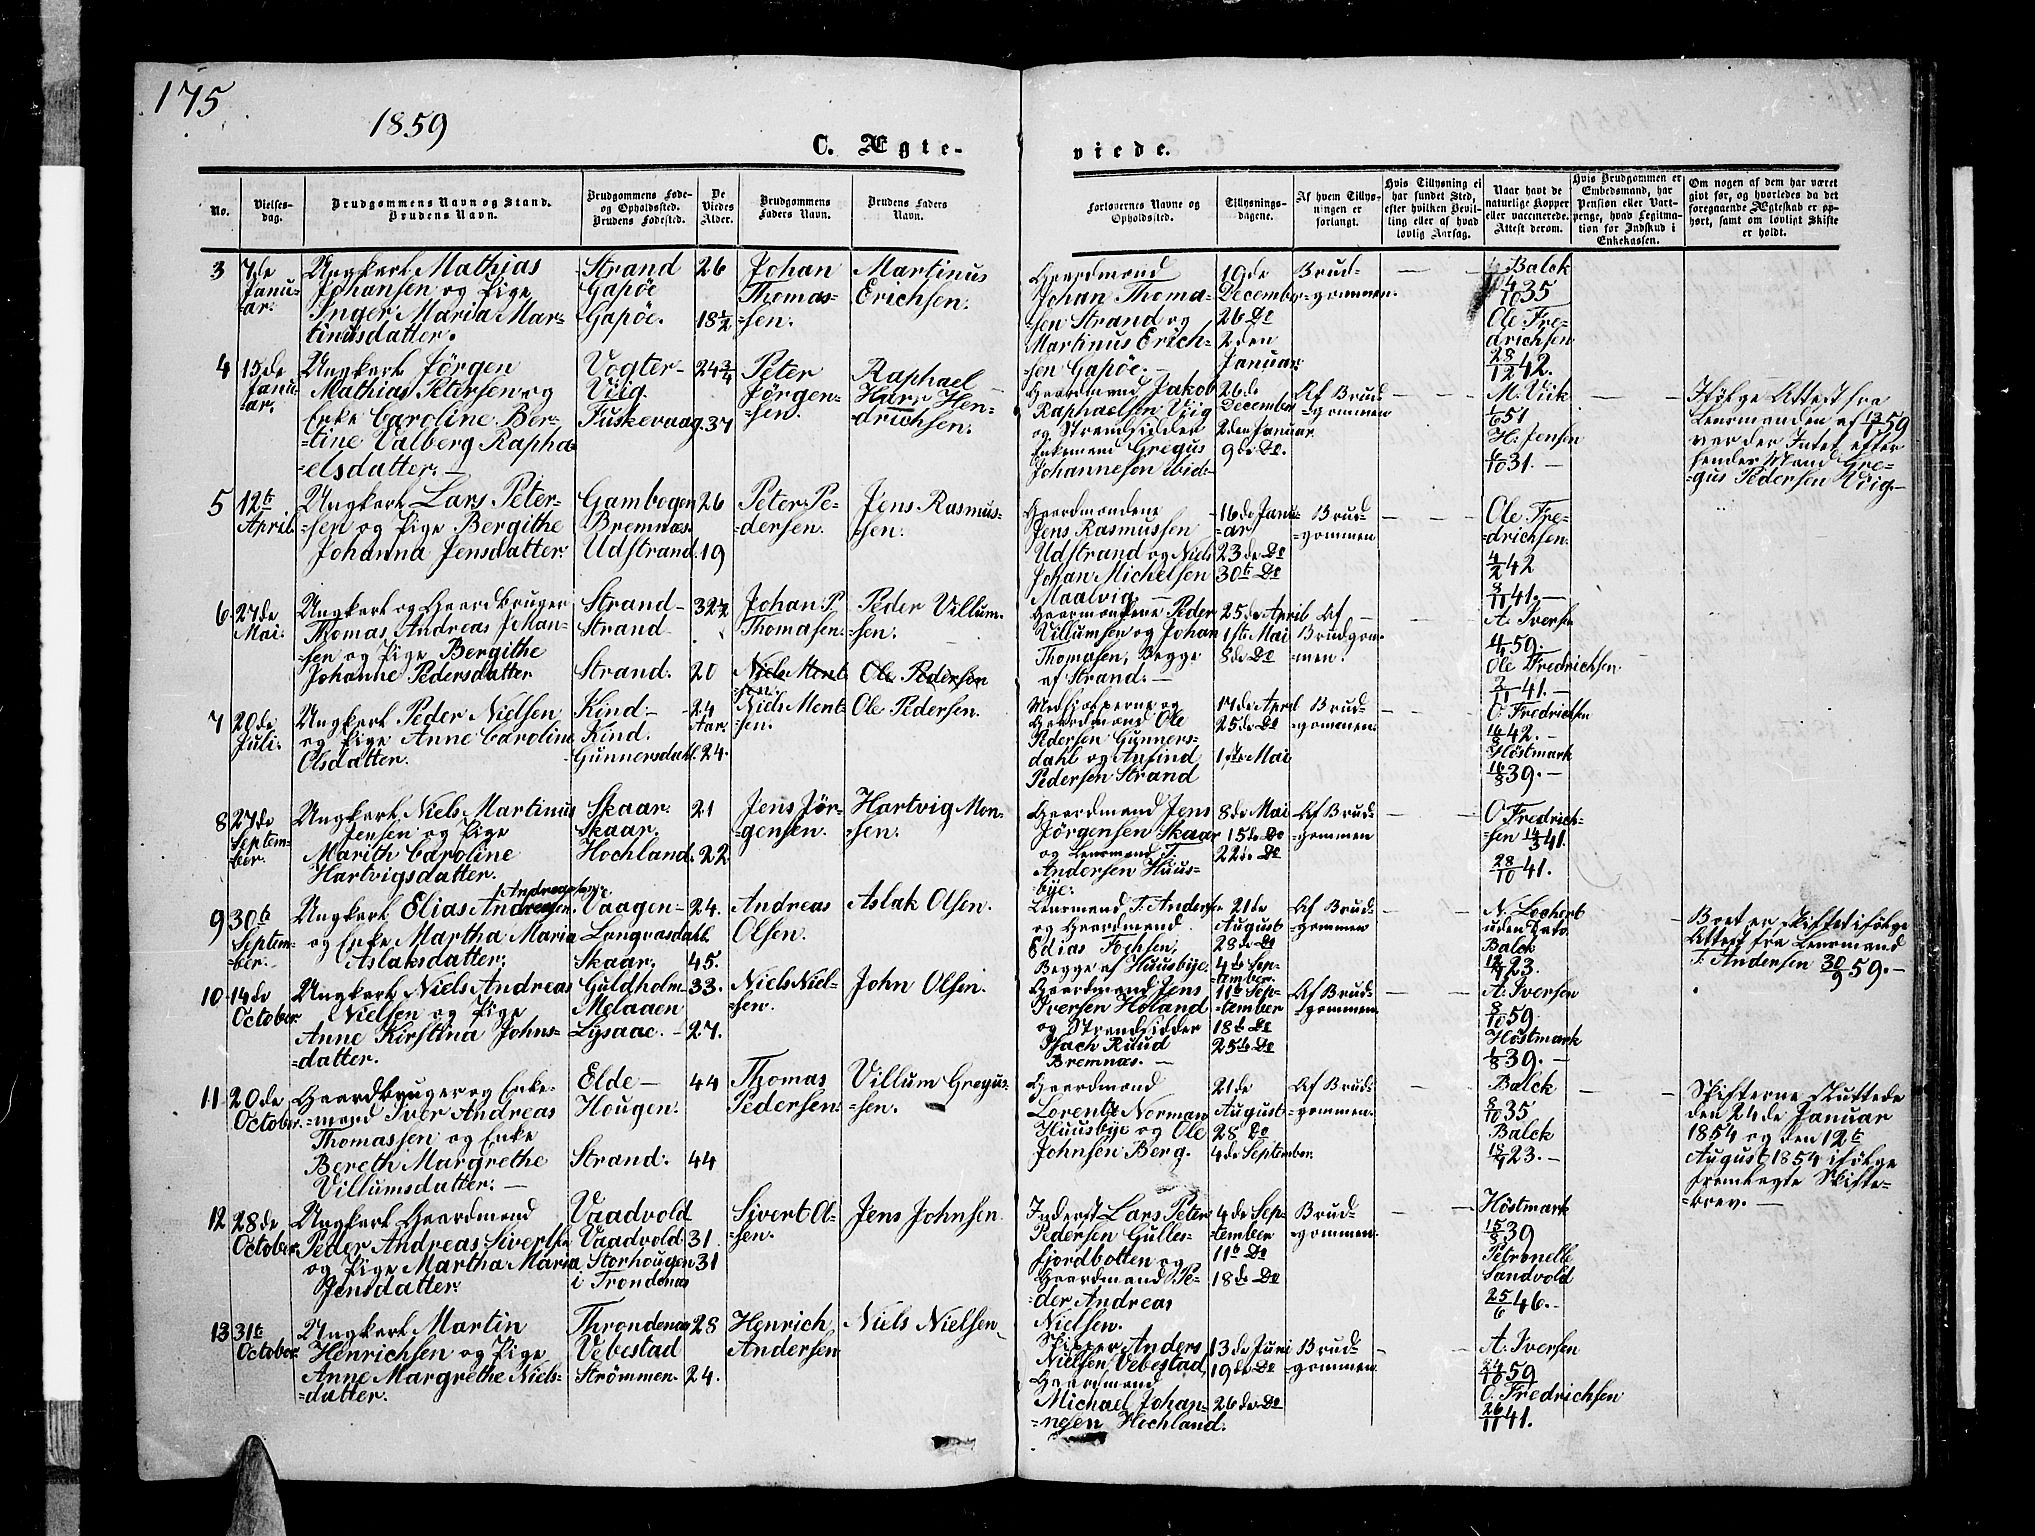 175
1859
C. Ægte-
viede.
No.
Vielses-
dag.
Brudgommens Navn og Stand.
Brudens Navn.
Brudgommens Føde-
og Opholdssted.
Brudens Fødested.
De
Viedes
Alder.
Brudgommens
Faders Navn.
Brudens Faders
Navn.
Forlovernes Navne og
Opholdssted.
Tillysnings-
dagene.
Af hvem Tillys-
ningen er
forlangt.
Hvis Tillysning ei
har fundet Sted,
efter hvilken Bevil-
ling eller af hvad
lovlig Aarsag.
Naar havt de
naturlige Kopper
eller vaccinerede.
Attest derom.
Hvis Brudgommen er
Embedsmand, har
Pension eller Vart-
penge, hvad Legitima-
tion for Indskud i
Enkekassen.
Om nogen af dem har været
givt før, og hvorledes da det
foregaaende Ægteskab er op-
hørt, samt om lovligt Skifte
er holdt.
3
7de
Janu-
ar.
Ungkarl Mathias
Johansen og Pige
Inger Maria Mar-
tinusdatter.
Strand
Gapöe
Gapöe.
26
18 1/2
Johan
Thomas-
=sen.
Martinus
Erichsen.
Gaardmand
Johan Thoma-
sen Strand og
Martinus Erich-
sen Gapöe.
19de
December
26 Do
2den
Januar.
Brud-
=gommen.
Balck
4/10 35
Ole Fre-
drichsen
28/12 42.
4
15de
Janu-
ar.
Ungkarl Jörgen
Mathias Petersen og
Enke Caroline Ber-
=tine Valberg Rapha
=elsdatter. —
Vogter-
Viig.
Fuskevaag.
24 3/4
37
Peter
Jörgen-
=sen.
Raphael
Hen-
drichsen.
Gaardmand Jakob
Raphaelsen Viig
og Strandsidder
Enkemand Gregus
Johannesen ibid.
26de
December
2den Januar.
9de Do.
Af Brud-
=gommen
M. Vik
1/6 51
H. Jensen
6/10 31. —
Ifölge Attest fra
Lensmanden af 13/1 59
var der Intet efter
hendes Mand Gre-
=gus Pedersen Viig. —
5
12te
April.
Ungkarl Lars Peter-
=sen og Pige Bergithe
Johanna Jensdatter.
Gambogen
Bremnæs
Udstrand.
26
19
Peter Pe-
=dersen.
Jens Rasmus-
=sen.
Gaardmandene
Jens Rasmussen
Udstrand og Niels
Johan Michelsen
Maalvig. —
16de Janu-
=ar
23de Do
30te Do
Brud-
=gommen
Ole Fre-
=drichsen.
4/2 42
8/11 41. —
6
27de
Mai.
Ungkarl og Gaardbruger
Thomas Andreas Johan-
=sen og Pige Bergithe
Johanne Pedersdatter
Strand-
Strand
Strand.
32 1/2
20
Johan P.
Thomasen.
Niels Mont
=sen.
Peder Villum-
=sen.
Ole Pedersen
Gaardmændene Peder
Villumsen og Johan
Thomasen, Begge
af Strand. —
25de April
1ste Mai
8de Do
Af
Brudgom-
=men.
A. Iversen
4/4 59.
Ole Fredrichsen
2/11 41. —
7
20de
Juli.
Ungkarl Peder Nielsen
og Pige Anne Caroline
Olsdatter.
Kind. —
Kind.
Gunnersdahl.
24
Aar.
24.
Niels Mont-
=sen.
Ole Pedersen.
Gaardmand Ole
Pedersen Gunners-
dahl og Anfind
Pedersen Strand
17de April
25de Do
1ste Mai
Brud-
=gommen.
O. Fredrichsen
16/8 42. —
Höstmark
16/8 39. —
8
27de
Septem-
ber.
Ungkarl Niels Martinus
Jensen og Pige
Marith Caroline
Hartvigsdatter.
Skaar.
Skaar.
Hochland.
21
22.
Jens Jör-
=gensen.
Hartvig Mon-
=sen.
Gaardmand Jens
Jörgensen Skaar
og Lensmand T.
Andersen Huus-
bye.
8de Mai
15de Do
22de Do
Af Brud-
=gommen
O. Fredrich-
=sen 14/3 41.
28/10 41.
9
30te
Septem-
ber. —
Ungkarl Elias Andreasen
og Enke Martha Maria
Aslaksdatter.
Vaagen-
Langvasdahl.
Skaar.
24.
45.
Andreas
Olsen.
Aslak Olsen.
Lensmand T. Andersen
og Gaardmand
Edias Ichsen,
Begge af Huusbye.
21de
August
28de Do
4de Sep-
=tember.
Af Brud-
=gommen
N. Lochert
uden Dato.
Balck
12/7 23.
Boet er skiftet ifölge
Attest fra Lensmand
T. Andersen 30/9 59. —
10
14de
October.
Ungkarl Niels Andreas
Nielsen og Pige
Anne Kirstina Johns-
=datter.
Guldholm
Melaaen
Lysaae.
33.
27.
Niels Niel-
=sen.
John Olsen.
Gaardmand Jens
Iversen Höland
og Strandsidder
Isach Ruud
Bremnæs. —
11te Sep-
=tember
18de Do
25de Do
Af Brud-
=gommen.
A. Iversen
8/10 59.
Höstmark
1/8 39. —
11
20de
October.
Gaardbruger og Enke-
=mand Iver Andreas
Thomassen og Enke
Bereth Margrethe
Villumsdatter. —
Elde —
Hougen.
Strand.
44
44
Thomas
Pedersen.
Villum Gregus-
=sen.
Gaardmand
Lorentz Norman
Huusbye og Ole
Johnsen Berg.
21de
August
28 Do
4de September.
Af Brud-
=gommen.
Balck
8/10 35
Balck
18/7 23. —
Skifterne sluttede
den 24de Januar
1854 og den 12te
August 1854 ifölge
fremlagte Skifte-
=brev. —
12
28de
October.
Ungkarl Gaardmand
Peder Andreas Sivertsen
og Pige Martha Maria
Jensdatter.
Vaadvold
Vaadvold
Storhougen
i Trondenæs
31
31
Sivert Ol-
=sen.
Jens Johnsen.
Inderst Lars Peter
Pedersen Gulles-
fjordbotten og
Gaardmand Pe-
=der Andreas
Nielsen.
4de Sep-
=tember
11te Do
18de Do
Brud-
=gommen.
Höstmark
15/8 39
Petronelle
Sandvold
25/6 46. —
13
31te
October.
Ungkarl Martin
Henrichsen og Pige
Anne Margrethe Niels-
=datter.
Throndenæs
Vebestad
Strömmen.
28
24.
Henrich
Andersen
Niels Nielsen
Skipper Anders
Nielsen Vebestad,
Gaardmand
Michael Johan-
=nesen Hochland.
13de Juni
19de Do
26de Do
Brud-
gommen.
A. Iversen
24/10 59
O. Fredrichsen
26/11 41.